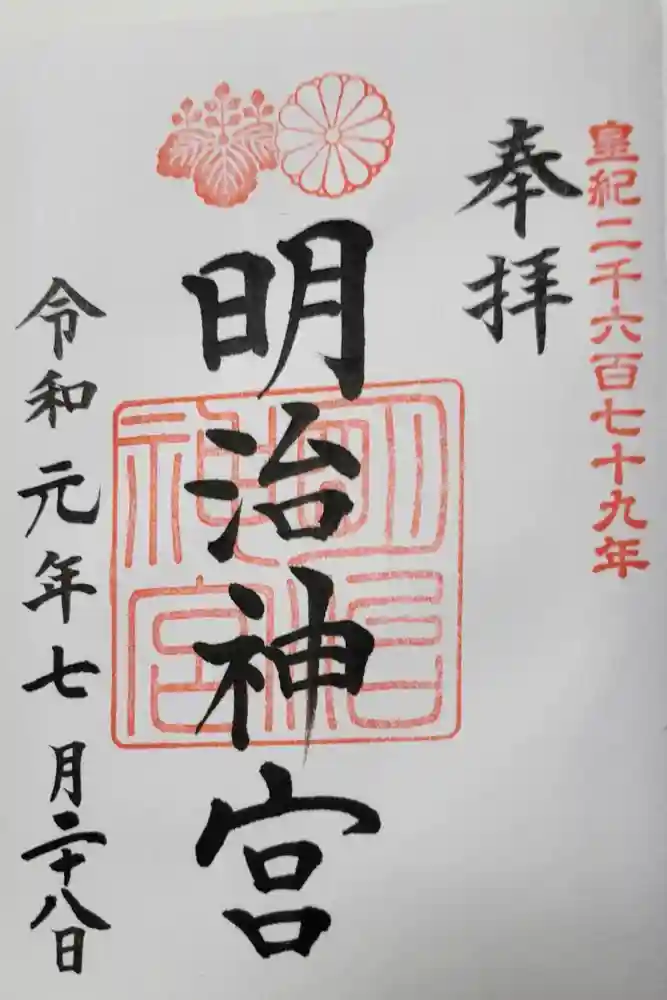 皇紀二千六百七十九年
奉拝
明治神宮
明治神宮
令和元年七月二十八日